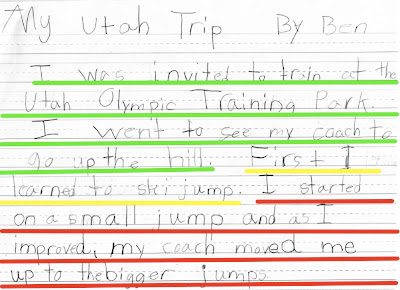 My Utah Trip By Ben
I was invited to train at the
Utah Olympic Training Park.
I went to see my coach to
go up the hill. First I
learned to ski jump. I started
on a small jump and as I
improved, my coach moved me
up to the bigger jumps.